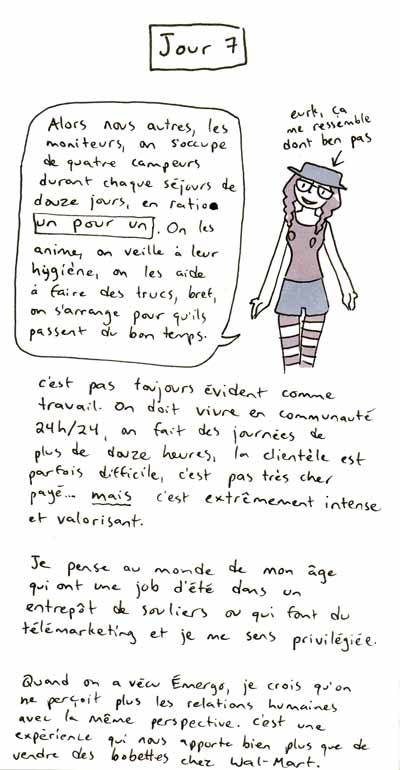 Jour 7
eurk, ça
me ressemble
dont ben pas
Alors nous autres, les
moniteurs, on s'occupe
de quatre campeurs
durant chaque séjours de
douze jours, en ratio
un pour un. On les
anime, on veille à leur
hygiène, on les aide
à faire des trucs, bref,
on s'arrange pour qu'ils
passent du bon temps.
c'est pas toujours évident comme
travail. On doit vivre en communauté
24h/24, on fait des journées de
plus de douze heures, la clientèle est
parfois difficile, c'est pas très cher
payé... mais c'est extrêmement intense
et valorisant.
Je pense au monde de mon âge
qui ont une job d'été dans un
entrepôt de souliers ou qui font du
télémarketing et je me sens privilégiée.
Quand on a vécu Émergo, je crois qu'on
ne perçoit plus les relations humaines
avec la même perspective. c'est une
expérience qui nous apporte bien plus que de
vendre des bobettes chez Wal-Mart.